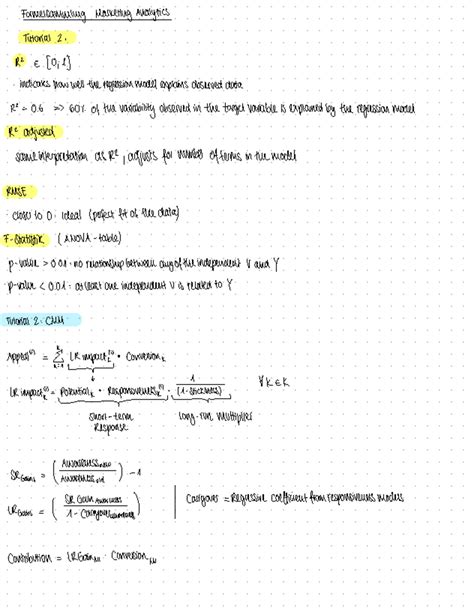 Formelsammlung Marketing Analytics
Tutorial 2.
R² ∈ [0,1]
· indicates how well the regression model explains observed data
R² = 0.6 => 60% of the variability observed in the target variable is explained by the regression model
R² adjusted
same interpretation as R², adjusts for number of terms in the model
RMSE
· close to 0 : ideal (perfect fit of the data)
F-Statistik (ANOVA-table)
p-value > 0.01 : no relationship between any of the independent V and Y
p-value < 0.01 : at least one independent V is related to Y
Tutorial 2: CMM
= Σ LR impact · Conversion
LR impact = Potential · Responsiveness · 1 / (1-Stickiness) ∀ K ∈ K
short-term long-run multiplier
Response
SR Gains = (Awareness new / Awareness old) - 1
LR Gains = (SR Gain Awareness / 1 - Carryover) | Carryover = Regressive coefficient from responsiveness models
Contribution = LR Gain · Conversion